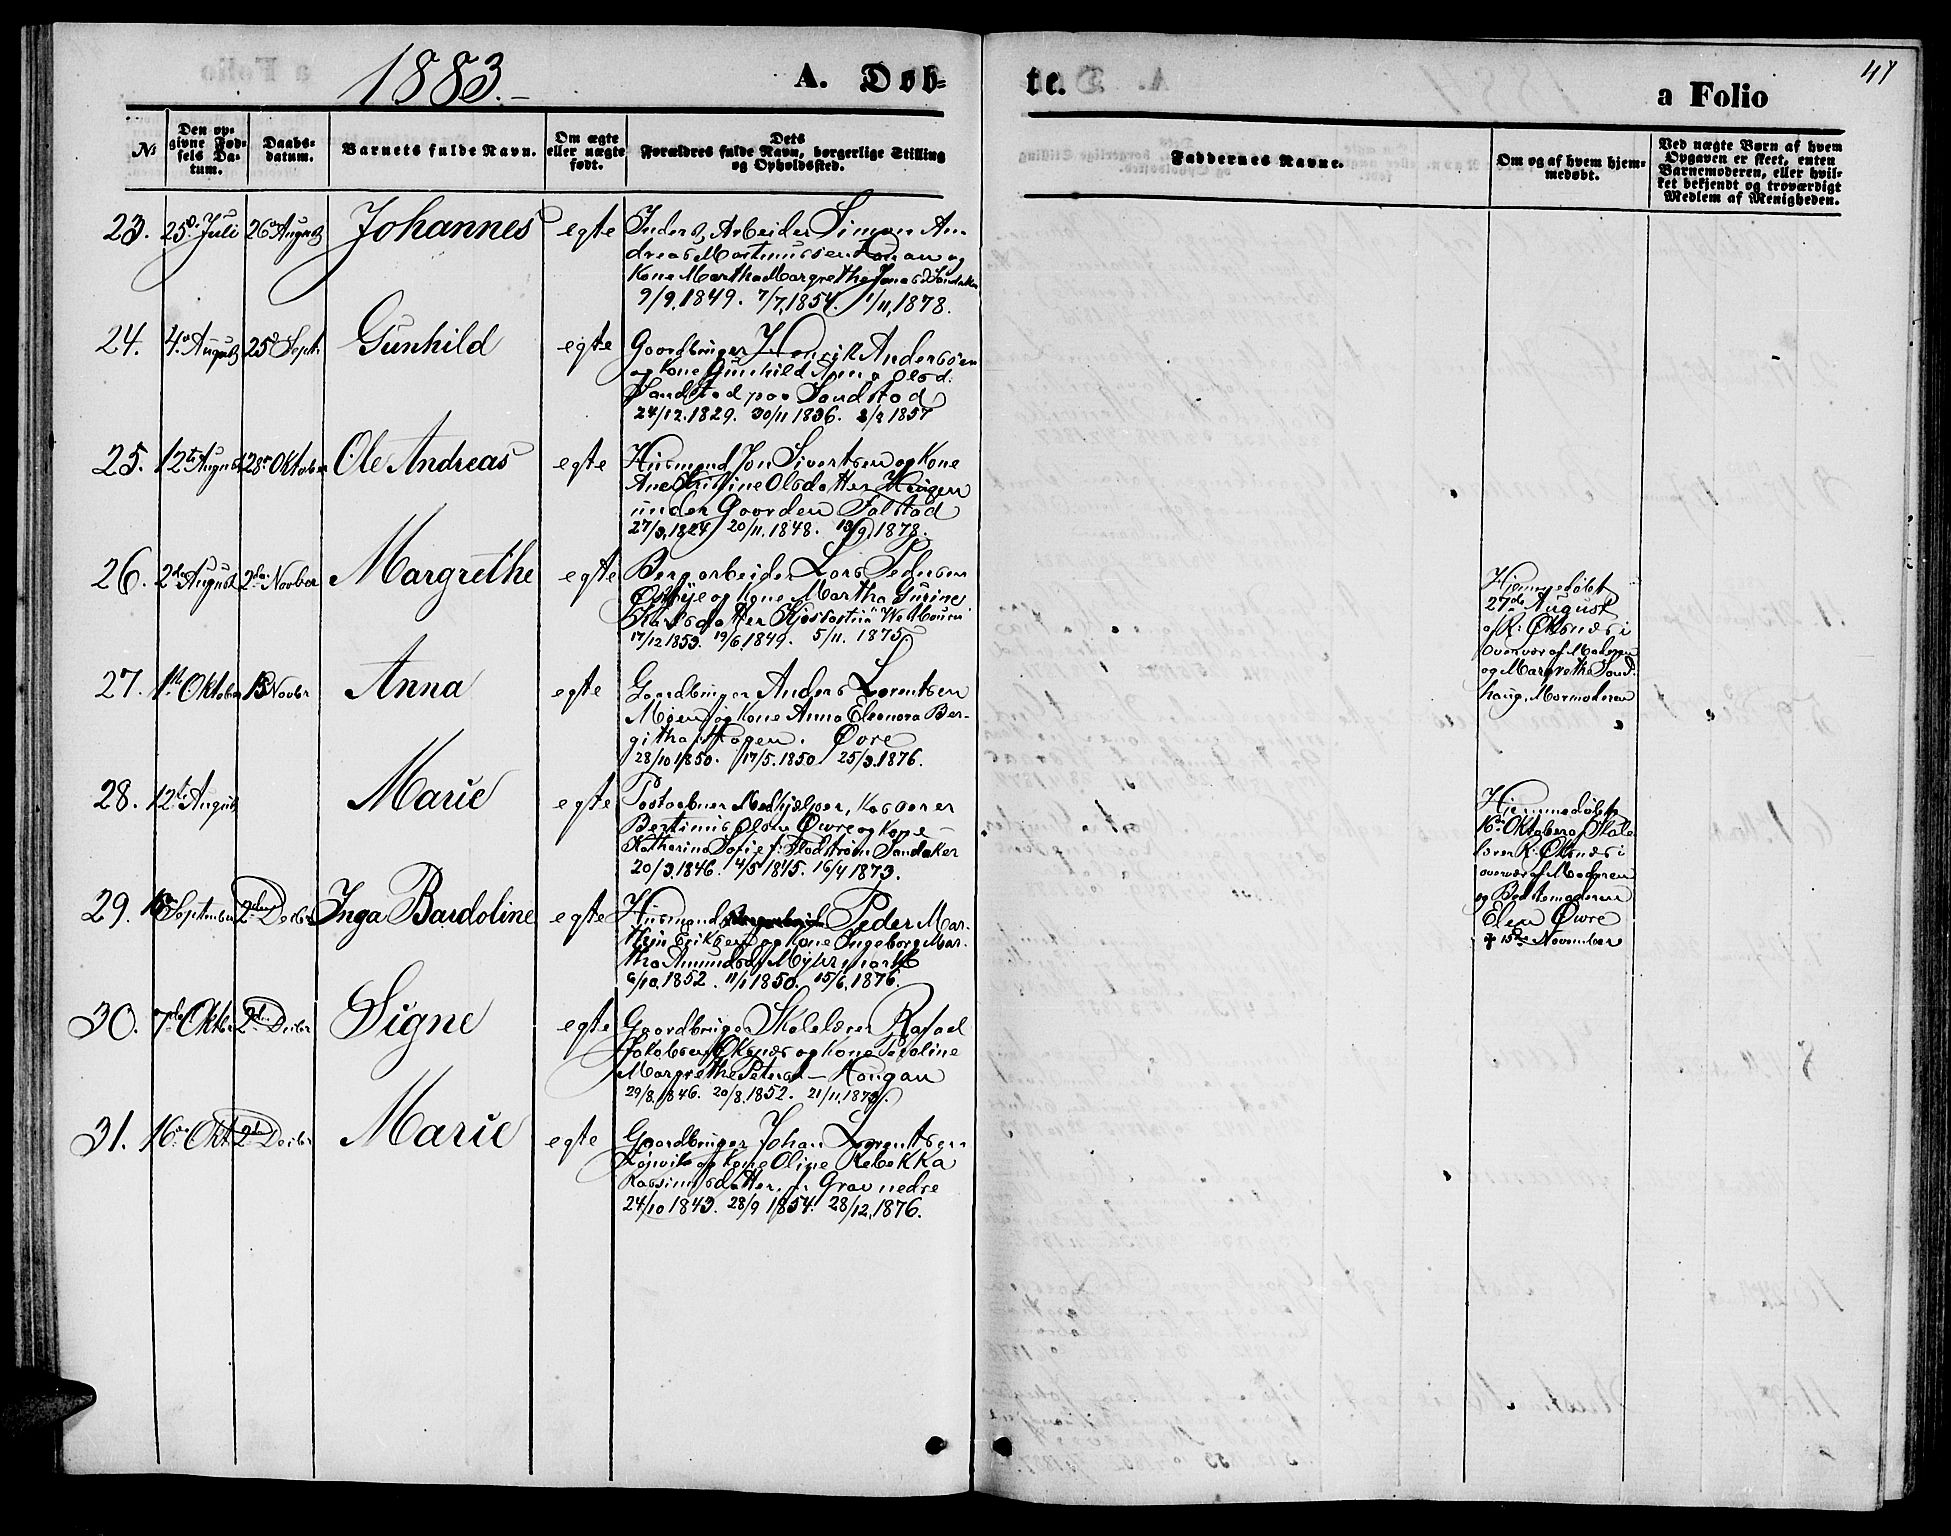 1883.
A. Døb-
te.
a Folio
41
№
Den op-
givne Fød-
sels Da-
tum.
Daabs-
datum.
Barnets fulde Navn.
Om ægte
eller uægte
født.
Dets
Forældres fulde Navn, borgerlige Stilling
og Opholdssted.
Faddernes Navne.
Om og af hvem hjem-
medøbt.
Ved uægte Børn af hvem
Opgaven er skeet, enten
Barnemoderen, eller hvil-
ket bekjendt og troværdigt
Medlem af Menigheden.
23. 25de Juli 26 August Johannes egte Inders. Arbeider Simon An-
dreas Martinussen og
Kone Martha Margrethe Jonasd. Sandaker
9/9, 1849. 7/7, 1854. 1/11, 1878.
24. 4de August 25de Septr Gunhild egte Gaardbruger Henrik Anderssen
og Kone Gunhild Anna Olsd.
Sandstad paa Sandstad
24/12. 1829. 30/11 1836. 1857
25. 12te August 28de Oktober Ole Andreas egte Husmand Jon Sivertsen og Kone
Ane Kristine Olsdatter Haugen
under Gaarden Falstad
27/3, 1824 20/11. 1848. 13/9, 1878.
26. 2den August 2den Novbr Margrethe egte Bergarbeider Lars Pedersen
Østbye og Kone Martha Gurine
Karlsdatter
17/12 1853. 19/6, 1849. 5/11. 1875
Hjemmedøbt
27de August
af K. Øksnes i
Overvær af Moderen
og Margretha Sand-
haug, Mormoderen
27. 1ste Oktober 15 Novbr Anna egte Gaardbruger Anders Lorentsen
Moen og Kone Anna Eleonora Ber-
githa Hagen. Øvre
28/10 1850. 17/5. 1850 25/3. 1876.
28. 12te August Marie egte Postaabner Medhjælper, Kasserer
Bertinus Olsen Øvre og Kone
Katharina Sofie f. Flodstrøm Sandaker
20/3. 1846. 4/5 1845. 16/4 1873.
Hjemmedøbt
16de Oktober af Skole-
lærer K. Øksnes i
overvær af Moderen
og Bedstemoderen
Elen Øvre
† 15de November
29. September 2den Decbr Inga Bardoline egte Husmand Peder Mar-
thin Eriksen og Kone Ingeborg Mar-
tha Amundsd. Myhrmark
6/10. 1852. 11/1 1850. 15/6, 1876.
30. 7de Oktbr 2den Decbr Signe egte Gaardbruger Skolelærer Rafael
Jakobsen Øksnes og Kone Peroline
Margrethe Petersd. - Haugan
29/8. 1846. 20/8. 1852. 21/11. 1873.
31. 16de Okt 2d Decbr Marie egte Gaardbruger Johan Lorentsen
Røsvik og Kone Oline Rebekka
Rasmusdatter. f. Grav nedre
24/10 1843. 28/9 1854. 28/12, 1876.